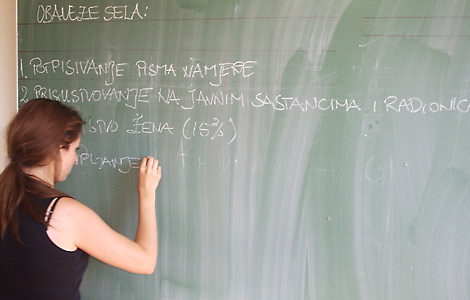 OBAVEZE SELA:
1. POTPISIVANJE PISMA NAMJERE
2. PRISUSTVOVANJE NA JAVNIM SASTANCIMA I RADIONICA
ŽENA (15%)